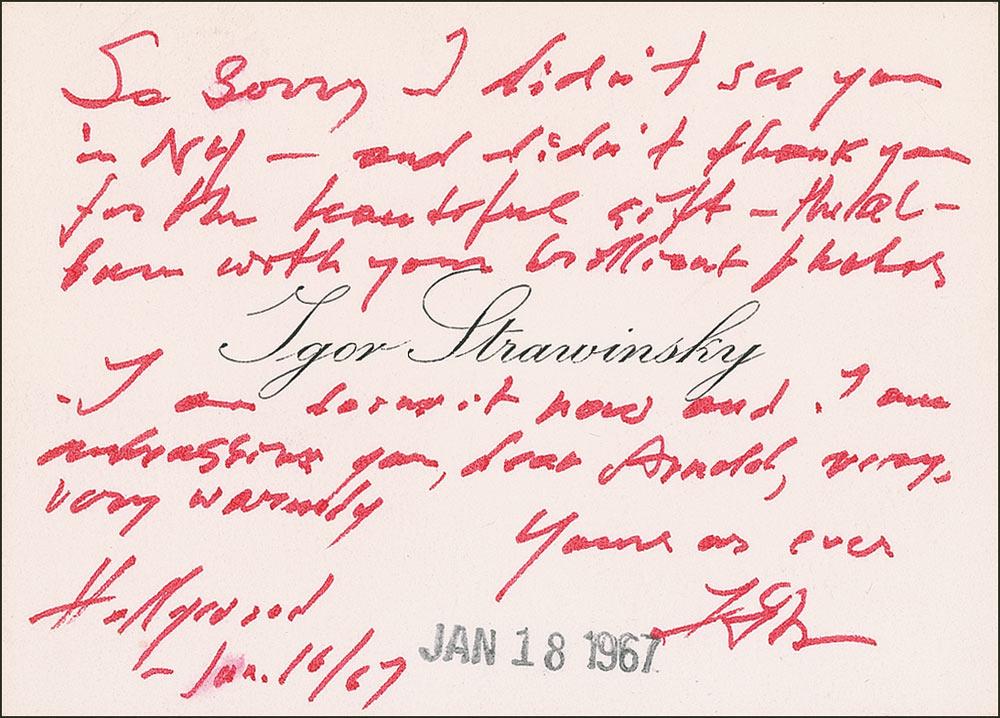 So sorry I didn't see you
in NY — and didn't thank you
for the beautiful gift – the al-
bum with your brilliant photos
Igor Strawinsky
I am doing it now and I am
embrassing you, dear Arnold, very,
very warmly
Yours as ever
Hollywood
JAN 18 1967
– Jan. 16/67